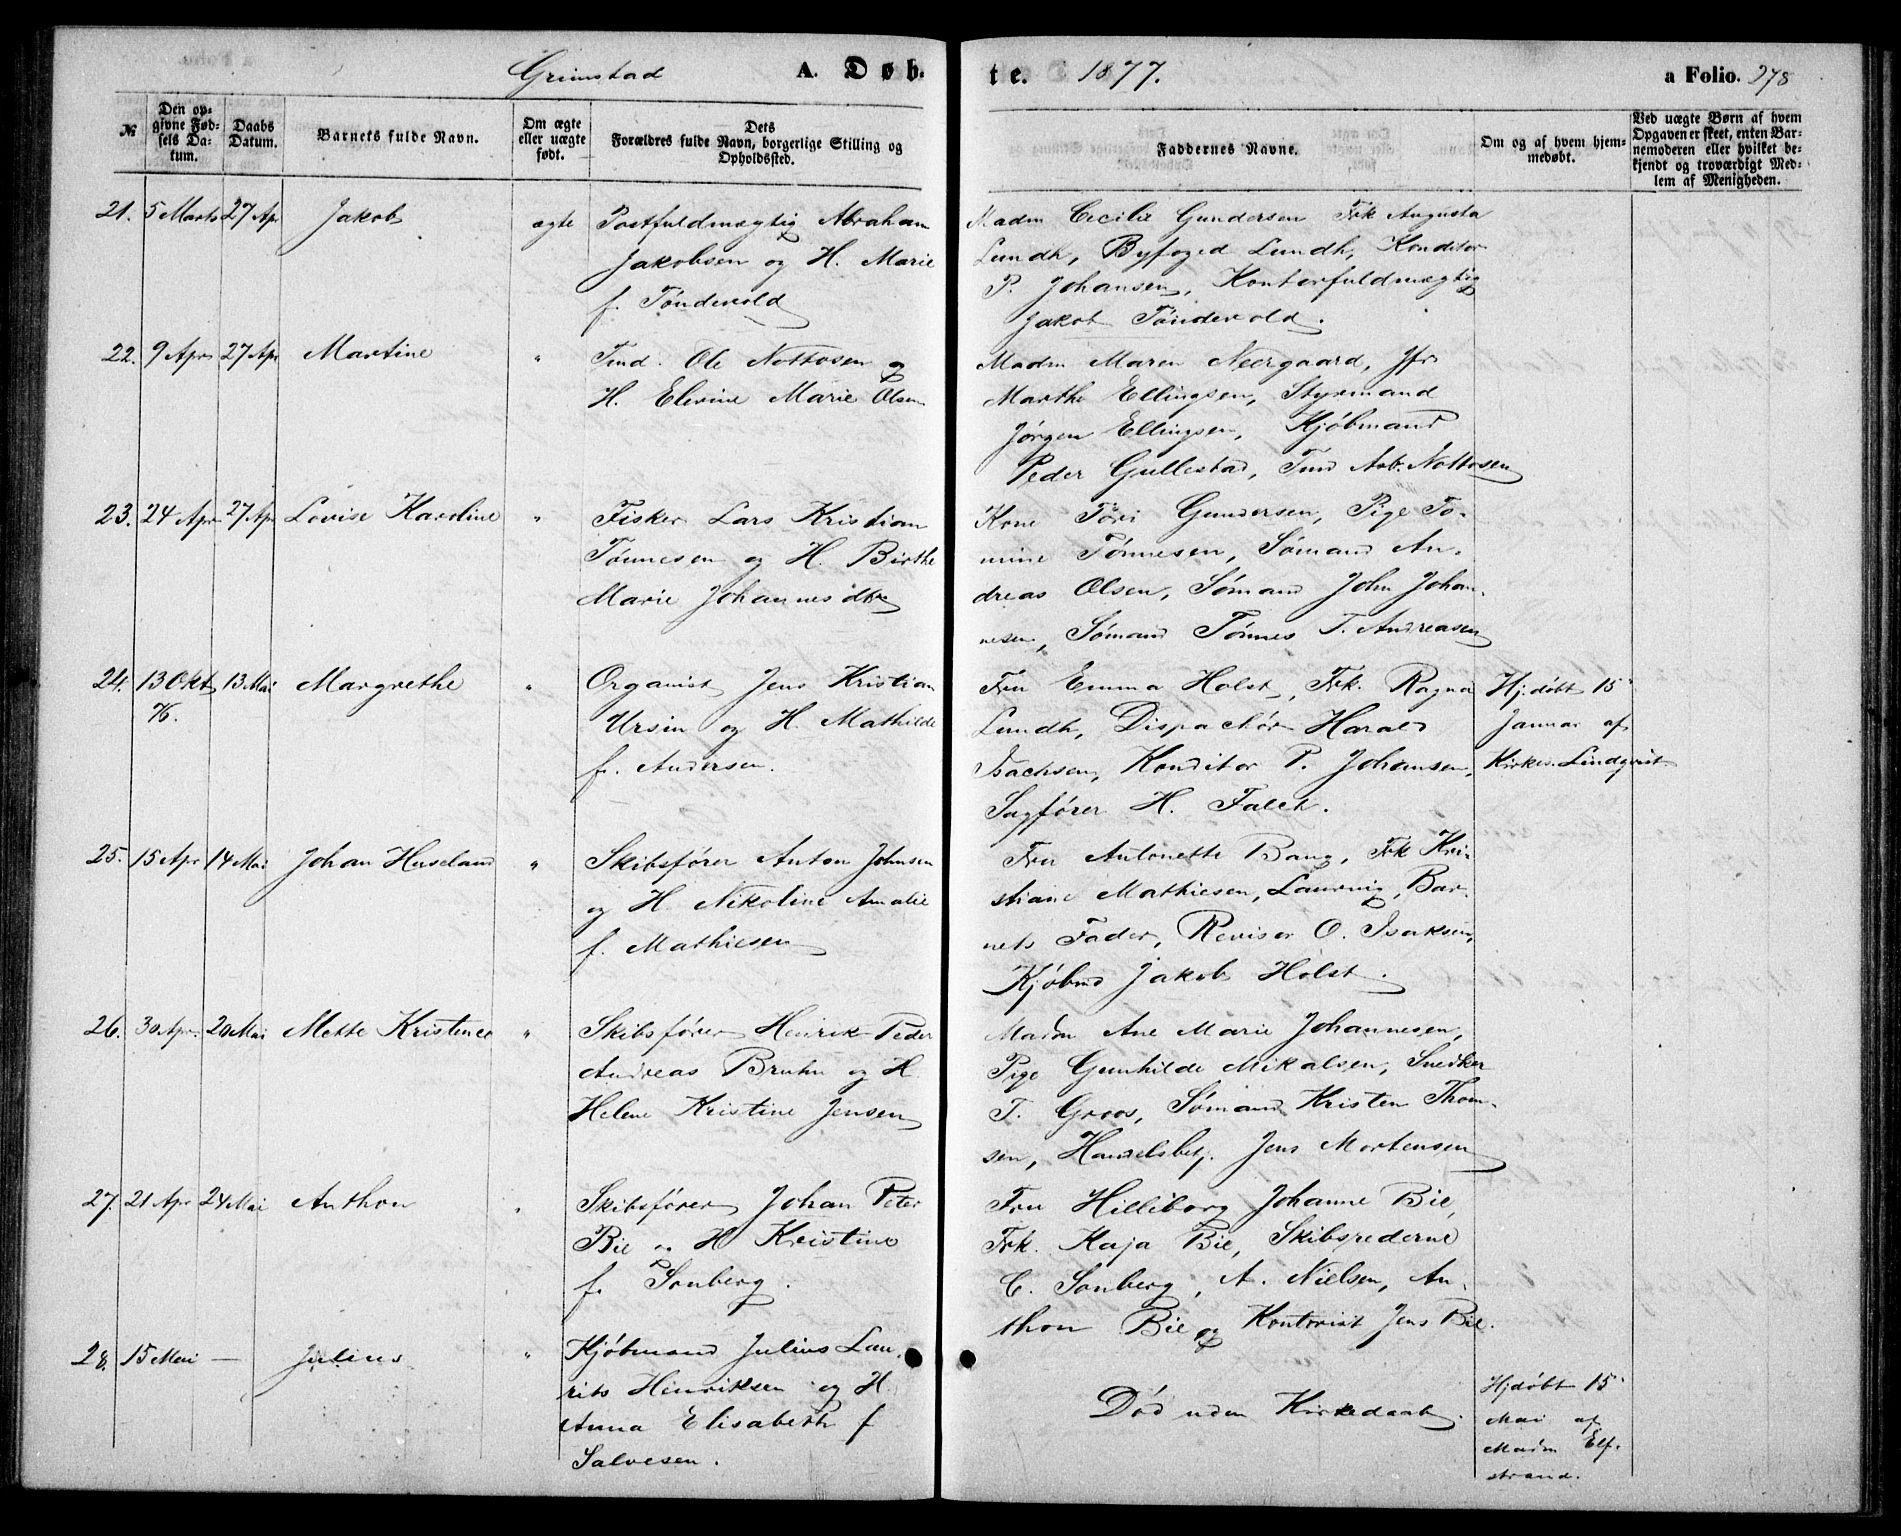 Grimstad A. Døb-
te. 1877. a Folio. 278
№
Den op-
givne Fød-
sels Da-
tum.
Daabs
Datum.
Barnets fulde Navn.
Om ægte
eller uægte
født.
Dets
Forældres fulde Navn, borgerlige Stilling og
Opholdssted.
Faddernes Navne.
Om og af hvem hjem-
medøbt.
Ved uægte Børn af hvem
Opgaven er skeet, enten Bar-
nemoderen eller hvilket be-
kjendt og troværdigt Med-
lem af Menigheden.
21. 5 Marts 27 Apr Jakob ægte Postfuldmægtig Abraham
Jakobsen og H. Marie
f. Tøndevold
Madm Cecilie Gundersen Frk Augusta
Lundh, Byfoged Lundh, Konditor
P. Johansen, Kontorfuldmægtig
Jakob Tøndevold.
22. 9 Apr 27 Apr Martine " Tmd. Ole Nottosen og
H. Elevine Marie Olsen
Madm Maren Neergaard, Jfr
Marthe Ellingsen, Styrmand
Jørgen Ellingsen, Kjøbmand
Peder Gullestad, Tmd Asb. Nottosen
23. 24 Apr 27 Apr Lovise Karoline " Fisker Lars Kristian
Tønnesen og H. Birthe
Marie Johannesdtr
Kone Tøri Gundersen, Pige To-
mine Tønnesen, Sømand An-
dreas Olsen, Sømand John Johan-
nesen, Sømand Tønnes T. Andreasen
24. 13 Okt 13 Mai Margrethe " Organist Jens Kristian
76. Ursin og H. Mathilde
f. Andersen.
Fru Emma Holst, Frk. Ragna
Lundh, Dispachør Harald
Isachsen, Konditor P. Johansen,
Sagfører H. Falch.
Hj.døbt 15
Januar af
Kirkes. Lindqvist
25. 15 Apr 14 Mai Johan Huseland " Skibsfører Anton Johnsen
og H. Nikoline Amalie
f. Mathiesen
Fru Antonette Bang, Frk Kri-
stiane Mathiesen, Laurvig, Bar-
nets Fader, Revisor O. Isaksen,
Kjøbmd Jakob Holst.
26. 30 Apr. 20 Mai Mette Kristence " Skibsfører Henrik Peder
Andreas Bruhn og H
Helene Kristine Jensen
Madm Ane Marie Johannesen,
Pige Gunhilde Mikalsen, Snedker
T. Groos, Sømand Kristen Thom-
sen, Handelsbetj. Jens Mortensen
27. 21 Apr 24 Mai Anthon " Skibsfører Johan Peter
Bie og H Kristine
f. Sonberg.
Fru Hilliborg Johanne Bie,
Frk. Kaja Bie, Skibsrederne
C. Sonberg, A. Nielsen, An-
thon Bie og Kontorist Jens Bie.
28. 15 Mai — Julius " Kjøbmand Julius Lau-
rits Henriksen og H.
Anna Elisabeth f
Salvesen.
Død uden Kirkedaab.
Hjdøbt 15
Mai af
Madm Elf-
strand.